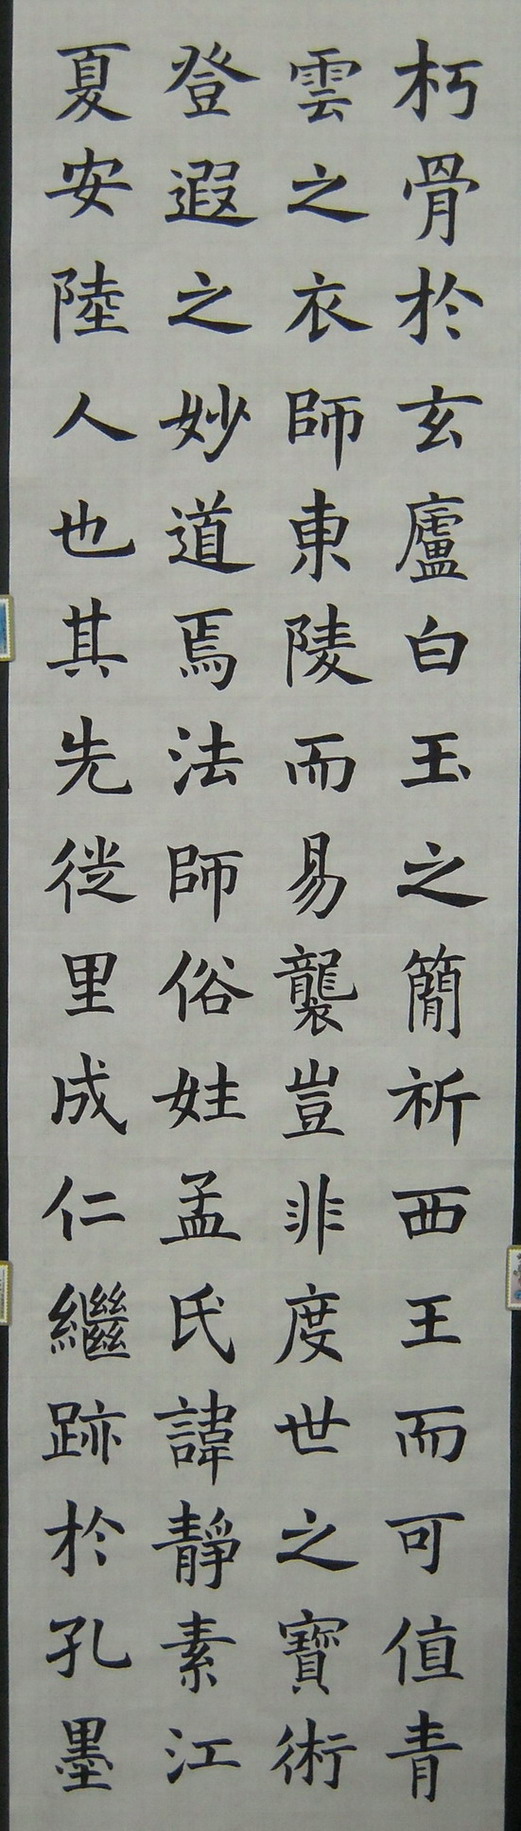 朽骨於玄廬白玉之簡祈西王而可值青
雲之衣師東陵而易襲豈非度世之寶術
登遐之妙道焉法師俗姓孟氏諱靜素江
夏安陸人也其先徙里成仁繼跡於孔墨